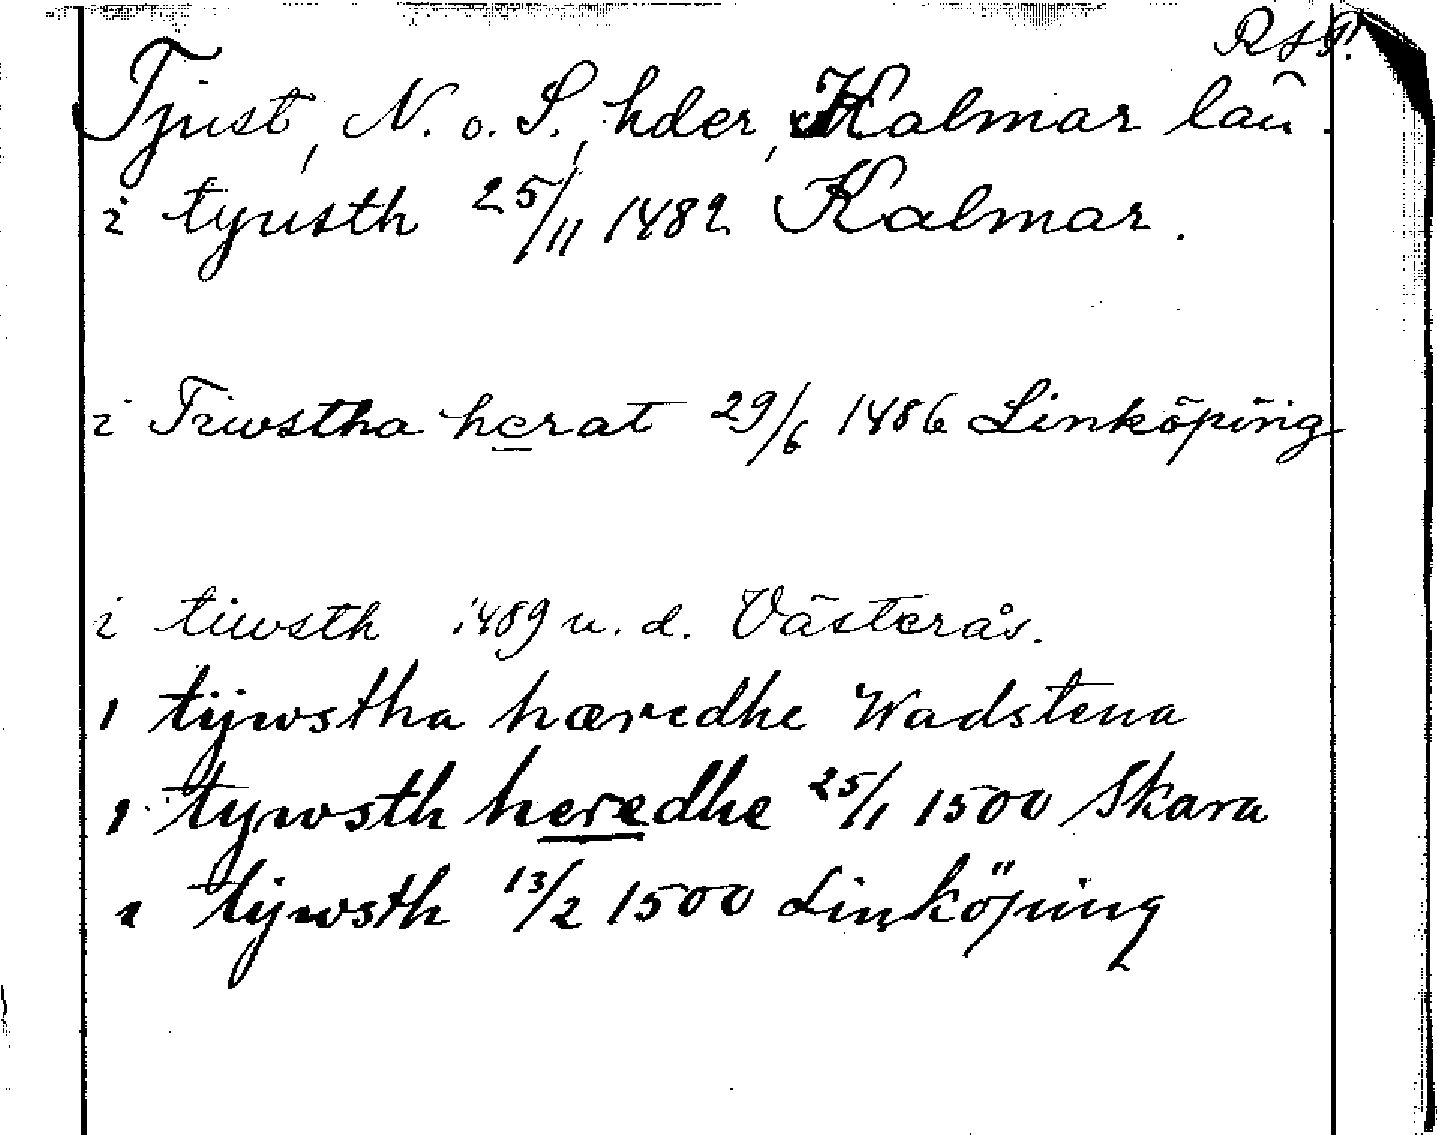 Tjust, N. o. S. hder, Kalmar län.
i tyusth 25/11 1482 Kalmar.
i Tiwstha herat 29/6 1486 Linköping
i tiwsth 1489 u. d. Västerås.
i tijwstha hæredhe Wadstena
i tywsth heredhe 25/1 1500 Skara
i tijwsth 13/2 1500 Linköping